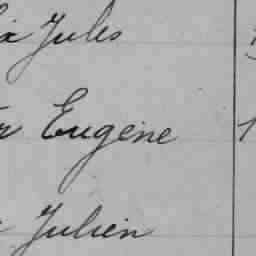 Jules
Eugène
Julien